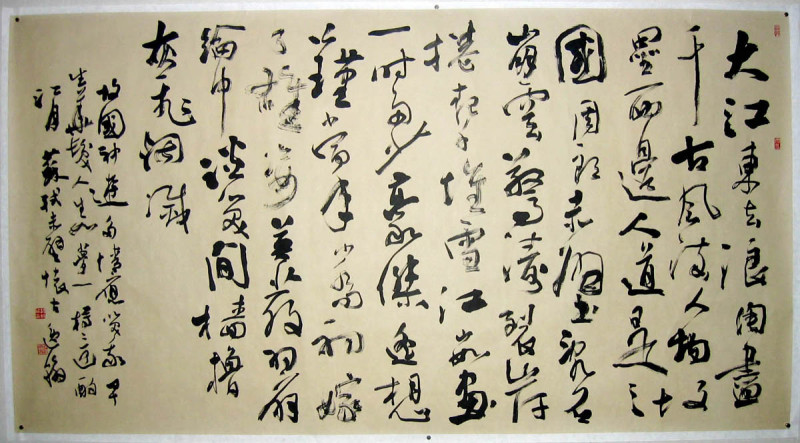 大江東去浪淘盡
千古風流人物故
壘西邊人道是三
國周郎赤壁亂石
崩雲驚濤裂岸
捲起千堆雪江山如畫
一時多少豪傑遙想
公瑾當年小喬初嫁
了雄姿英發羽扇
綸巾談笑間檣櫓
灰飛煙滅
故國神遊多情應笑我早
生華髮人生如夢一樽還酹
江月 蘇軾赤壁懷古